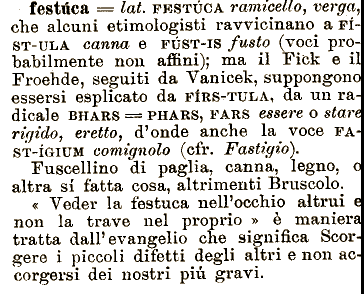 festúca = lat. FESTÚCA ramicello, verga,
che alcuni etimologisti ravvicinano a FÍ-
ST-ULA canna e FÚST-IS fusto (voci pro-
babilmente non affini); ma il Fick e il
Froehde, seguiti da Vanicek, suppongono
essersi esplicato da FÍRS-TULA, da un ra-
dicale BHARS = PHARS, FARS essere o stare
rigido, eretto, d'onde anche la voce FA-
ST-ÍGIUM comignolo (cfr. Fastigio).
Fuscellino di paglia, canna, legno, o
altra sí fatta cosa, altrimenti Bruscolo.
« Veder la festuca nell'occhio altrui e
non la trave nel proprio » è maniera
tratta dall'evangelio che significa Scor-
gere i piccoli difetti degli altri e non ac-
corgersi dei nostri piú gravi.